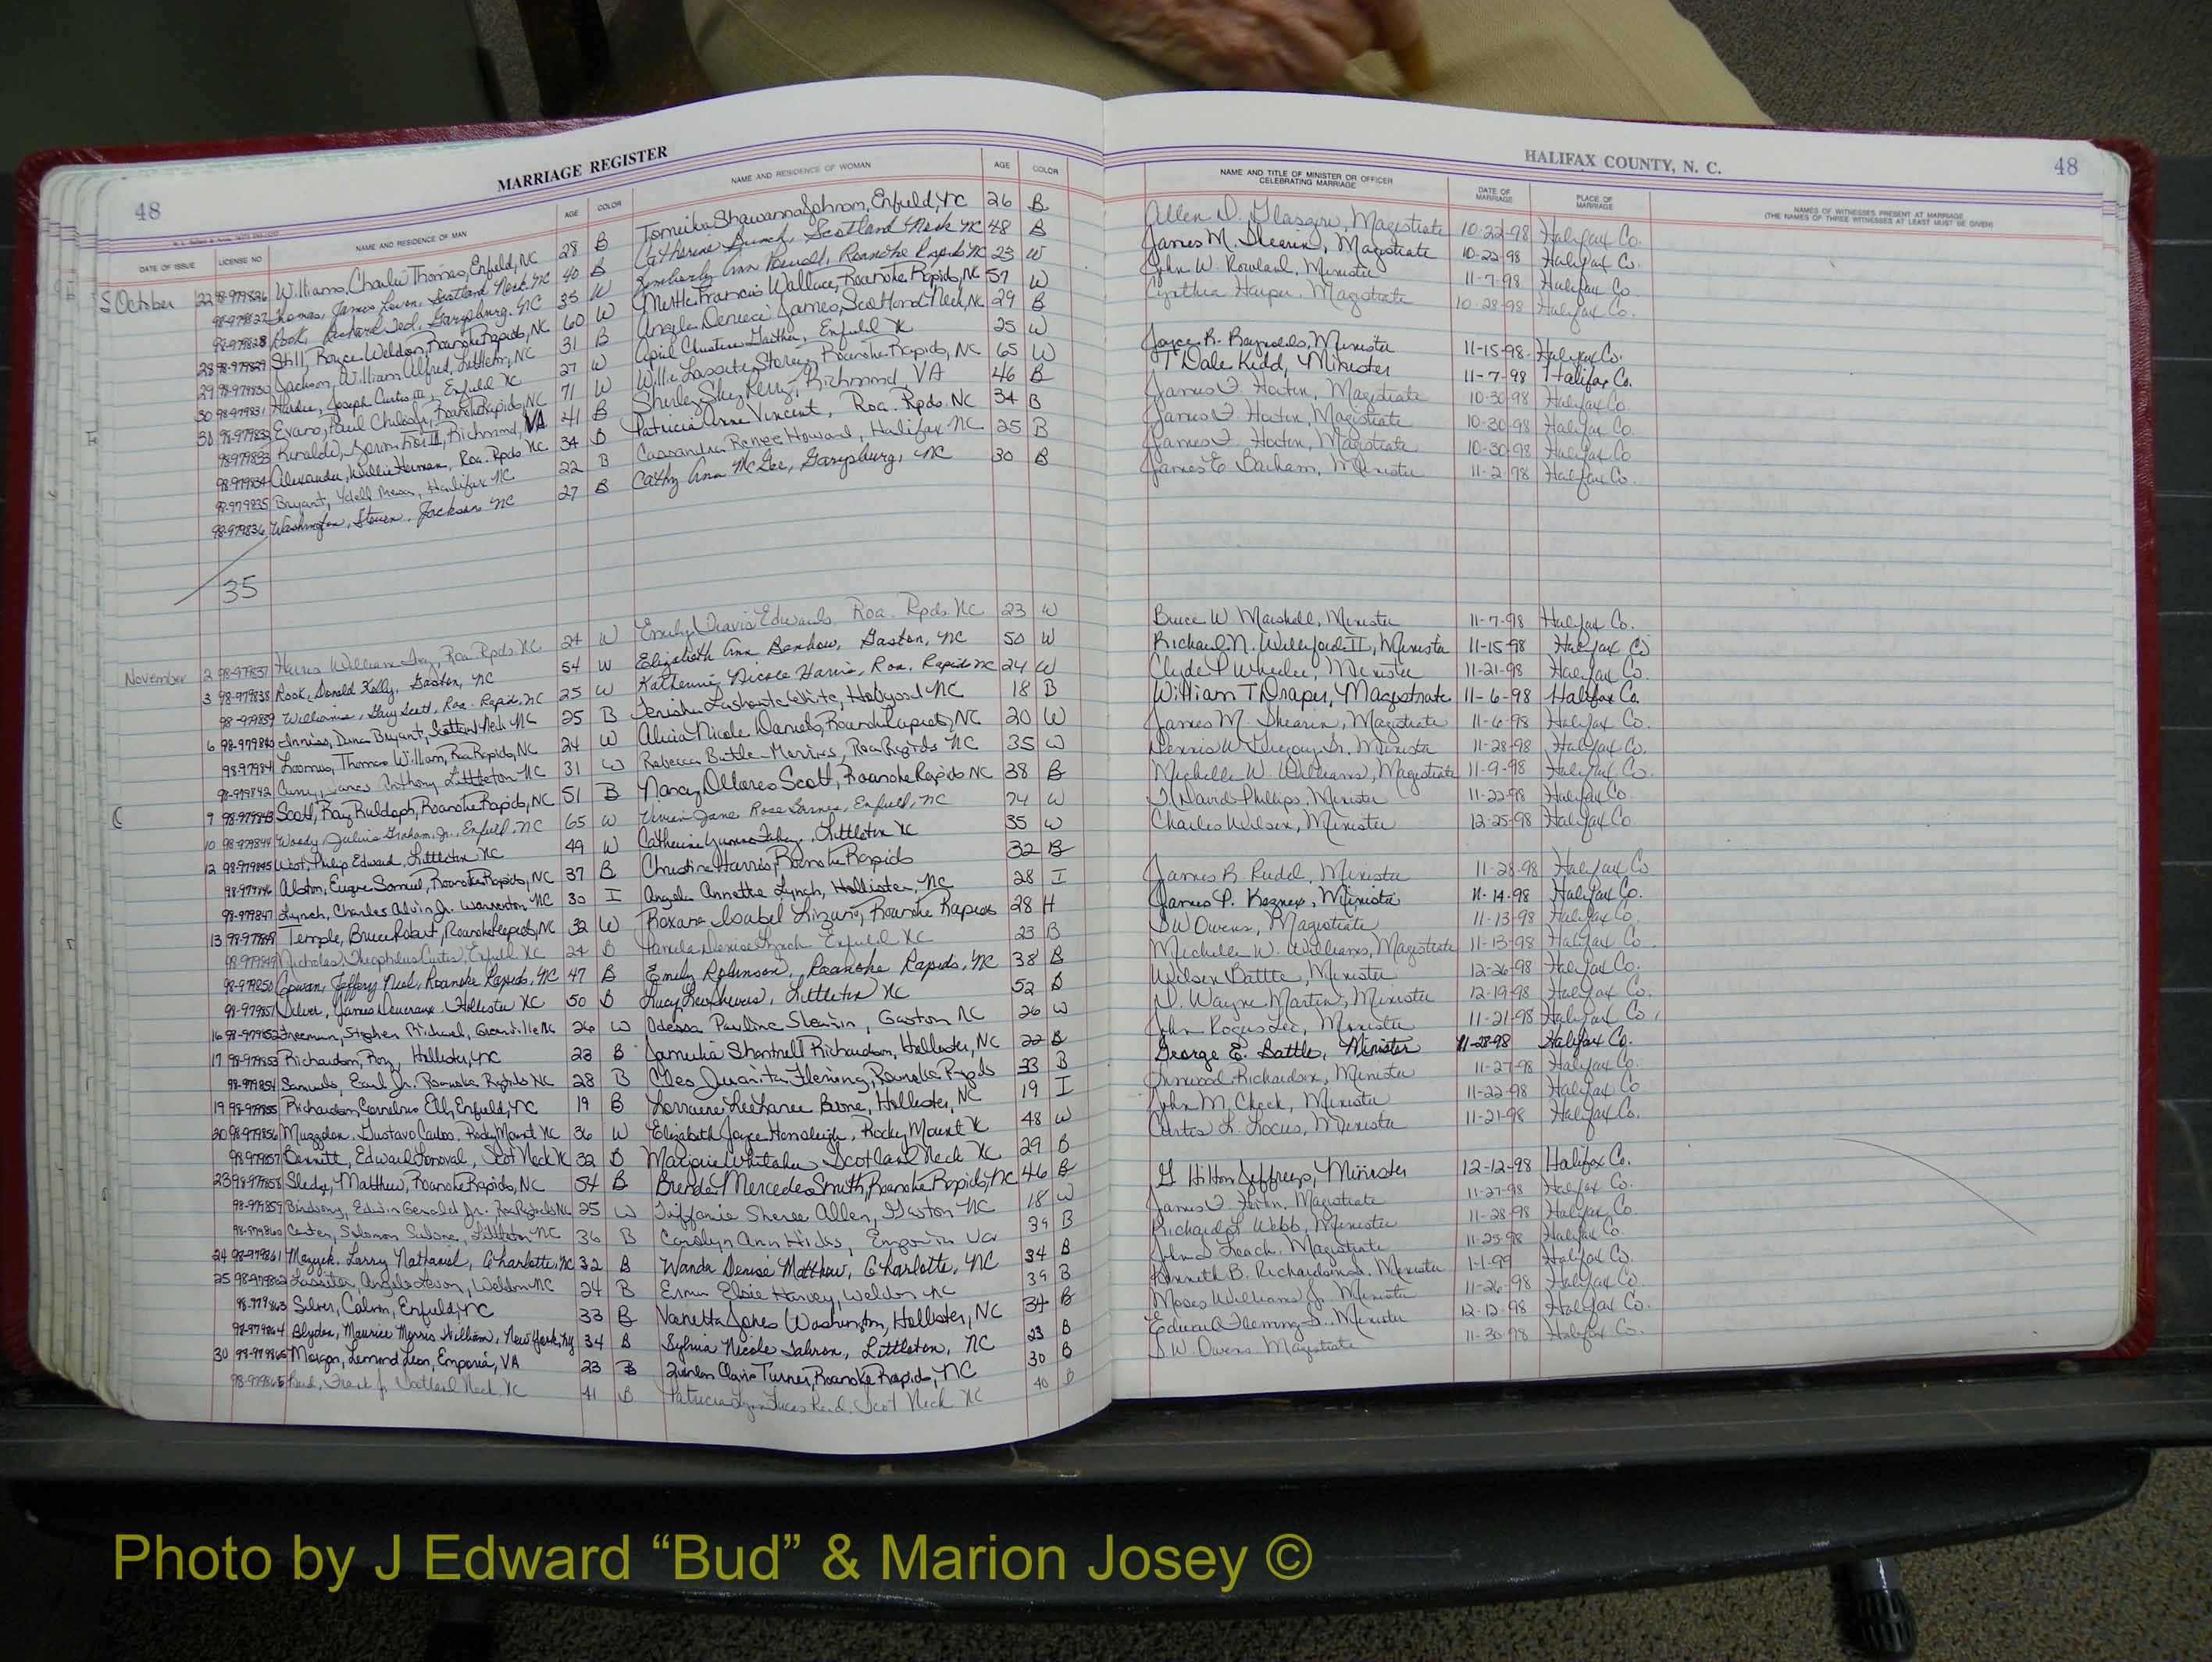 MARRIAGE REGISTER
HALIFAX COUNTY, N. C.
48
48
DATE OF ISSUE LICENSE NO NAME AND RESIDENCE OF MAN AGE COLOR NAME AND RESIDENCE OF WOMAN AGE COLOR NAME AND TITLE OF MINISTER OR OFFICER CELEBRATING MARRIAGE DATE OF MARRIAGE PLACE OF MARRIAGE NAMES OF WITNESSES PRESENT AT MARRIAGE (THE NAMES OF THREE WITNESSES AT LEAST MUST BE GIVEN)
October 22 98-979826 Williams, Charlie Thomas, Enfield, NC 28 B Tomeika Shawanna Johnson, Enfield, NC 26 B Allen D. Glasgow, Magistrate 10-22-98 Halifax Co.
98-979827 Thomas, James Scotland Neck NC 40 B Catherine Scotland Neck NC 48 B James M. Shearin, Magistrate 10-22-98 Halifax Co.
98-979828 Rook, Richard Ted, Garysburg, NC 35 W Kimberly Ann Powell, Roanoke Rapids NC 23 W John W. Rowland, Minister 11-7-98 Halifax Co.
28 98-979829 Still, Royce Weldon, Roanoke Rapids, NC 60 W Myrtle Francis Wallace, Roanoke Rapids, NC 57 W Cynthia Harper, Magistrate 10-28-98 Halifax Co.
29 98-979830 Jackson, William Alfred, Littleton, NC 31 B Angela Deniece James, Scotland Neck, NC 29 B
30 98-979831 Hardee, Joseph Curtis III, Enfield NC 27 W April Christine Gaither, Enfield NC 25 W Joyce R. Reynolds, Minister 11-15-98 Halifax Co.
30 98-979832 Evans, Paul Roanoke Rapids, NC 71 W Willie Lassiter Storey, Roanoke Rapids, NC 65 W T Dale Kidd, Minister 11-7-98 Halifax Co.
98-979833 Richmond, VA 41 B Shirley Sky Kerry, Richmond, VA 46 B James Magistrate 10-30-98 Halifax Co.
98-979834 Alexander, Willie Herman, Roa. Rpds. NC 34 B Patricia Anne Vincent, Roa. Rpds. NC 34 B James Magistrate 10-30-98 Halifax Co.
98-979835 Bryant, Halifax NC 22 B Cassandra Renee Howard, Halifax NC 25 B James Magistrate 10-30-98 Halifax Co
98-979836 Washington, Steven, Jackson NC 27 B Cathy Ann McGee, Garysburg, NC 30 B James E. Barham, Minister 11-2-98 Halifax Co.
35
November 2 98-979837 Harris William Roa. Rpds. NC 24 W Emily Travis Edwards, Roa. Rpds. NC 23 W Bruce W. Marshall, Minister 11-7-98 Halifax Co.
3 98-979838 Rook, Donald Kelly, Gaston, NC 54 W Elizabeth Ann Benbow, Gaston, NC 50 W Richard N. Williford II, Minister 11-15-98 Halifax Co
98-979839 Williams, Gary Scott, Roa. Rapids, NC 25 W Katherine Nicole Harris, Roa. Rapids NC 24 W Clyde P Wheeler, Minister 11-21-98 Halifax Co
6 98-979840 Inniss, Dana Bryant, Scotland Neck NC 25 B Tenisha Lashonta White, Hobgood NC 18 B William T Draper, Magistrate 11-6-98 Halifax Co.
98-979841 Loomis, Thomas William, Roa Rapids, NC 24 W Alicia Nicole Daniels, Roanoke Rapids, NC 20 W James M. Shearin, Magistrate 11-6-98 Halifax Co.
98-979842 Curry, James Anthony Littleton NC 31 W Rebecca Butler Morris, Roa Rapids NC 35 W Dennis W. Gregory Sr. Minister 11-28-98 Halifax Co.
9 98-979843 Scott, Ray Ruldoph, Roanoke Rapids, NC 51 B Nancy Scott, Roanoke Rapids NC 38 B Michelle W. Williams, Magistrate 11-9-98 Halifax Co.
10 98-979844 Woody, Julius Graham, Jr., Enfield, NC 65 W Vivian Jane Rose Barnes, Enfield, NC 74 W J. David Phillips, Minister 11-22-98 Halifax Co.
12 98-979845 West, Philip Edward, Littleton NC 49 W Catherine Littleton NC 35 W Charles Wilson, Minister 12-25-98 Halifax Co
98-979846 Alston, Eugene Samuel, Roanoke Rapids, NC 37 B Christine Harris, Roanoke Rapids 32 B
98-979847 Lynch, Charles Alvin Jr. Warrenton NC 30 I Angela Annette Lynch, Hollister, NC 28 I James B. Minister 11-28-98 Halifax Co
13 98-979848 Temple, Bruce Robert, Roanoke Rapids, NC 32 W Roxana Isabel Roanoke Rapids 28 H James P. Minister 11-14-98 Halifax Co.
98-979849 Nicholas, Theophilus Curtis, Enfield NC 24 B Pamela Denise Lynch Enfield NC 23 B SW Owens, Magistrate 11-13-98 Halifax Co.
98-979850 Cowan, Jeffery Neal, Roanoke Rapids, NC 47 B Emily Robinson, Roanoke Rapids, NC 38 B Michelle W. Williams, Magistrate 11-13-98 Halifax Co.
98-979851 Silver, James Devereaux Hollister NC 50 B Lucy Littleton NC 52 B Wilson Battle, Minister 12-26-98 Halifax Co.
16 98-979852 Freeman, Stephen Richard, Greenville NC 26 W Odessa Pauline Shearin, Gaston NC 26 W D. Wayne Martin, Minister 12-19-98 Halifax Co.
17 98-979853 Richardson, Roy, Hollister, NC 23 B Jamelia Shontrell Richardson, Hollister, NC 22 B John Rogers Lee, Minister 11-21-98 Halifax Co.
98-979854 Samuels, Earl Jr. Roanoke Rapids NC 28 B Cleo Juanita Fleming, Roanoke Rapids 33 B George E. Battle, Minister 11-28-98 Halifax Co.
19 98-979855 Richardson, Cornelius Ell, Enfield, NC 19 B Lorraine Hollister, NC 19 I Richardson, Minister 11-27-98 Halifax Co.
20 98-979856 Gustavo Carlos, Rocky Mount NC 36 W Elizabeth Joyce Hensleigh, Rocky Mount NC 48 W John M. Cheek, Minister 11-22-98 Halifax Co
98-979857 Bennett, Edward Scot Neck NC 32 B Marjorie Whitaker Scotland Neck NC 29 B Curtis L. Locus, Minister 11-21-98 Halifax Co.
23 98-979858 Sledge, Matthew, Roanoke Rapids, NC 54 B Brenda Mercedes Smith, Roanoke Rapids, NC 46 B
98-979859 Birdsong, Edwin Gerald Jr. Roa Rapids NC 25 W Tiffanie Sheree Allen, Gaston NC 18 W G Hilton Jeffreys, Minister 12-12-98 Halifax Co.
98-979860 Carter, Solomon Littleton NC 36 B Carolyn Ann Hicks, Emporia Va 39 B James Magistrate 11-27-98 Halifax Co.
24 98-979861 Mazyck, Larry Nathaniel, Charlotte, NC 32 B Wanda Denise Matthew, Charlotte, NC 34 B Richard L Webb, Minister 11-28-98 Halifax Co
25 98-979862 Lassiter, Angelo Weldon NC 24 B Elsie Harvey, Weldon NC 39 B John Leach, Magistrate 11-25-98 Halifax Co.
98-979863 Silver, Calvin, Enfield, NC 33 B Vanetta Jones Washington, Hollister, NC 34 B Kenneth B. Richardson Minister 1-1-99 Halifax Co.
98-979864 Blyden, Maurice Morris William, New York, NY 34 B Sylvia Nicole Littleton, NC 23 B Moses Williams Jr. Minister 11-26-98 Halifax Co.
30 98-979865 Morgan, Lemond Leon, Emporia, VA 23 B Turner, Roanoke Rapids, NC 30 B Fleming Minister 12-12-98 Halifax Co.
Frank Jr Scotland Neck NC 41 B Patricia Lynn Scot Neck NC 40 B S.W. Owens Magistrate 11-30-98 Halifax Co.
Photo by J Edward “Bud” & Marion Josey ©